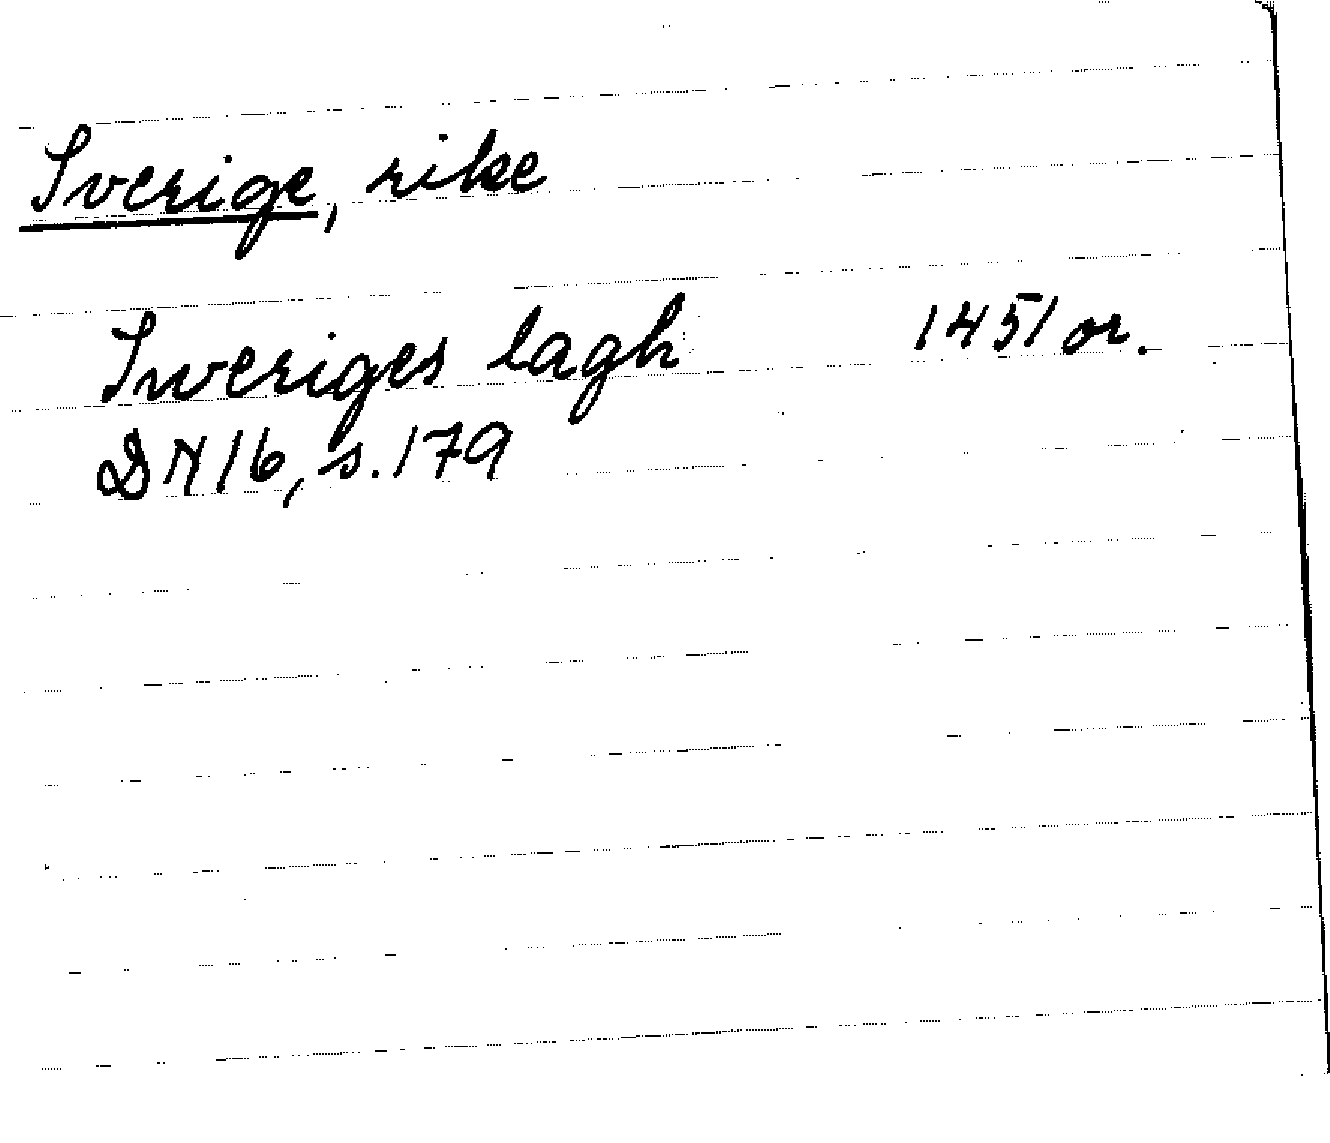 Sverige, rike
Sweriges lagh 1451 or.
DN 16, s. 179